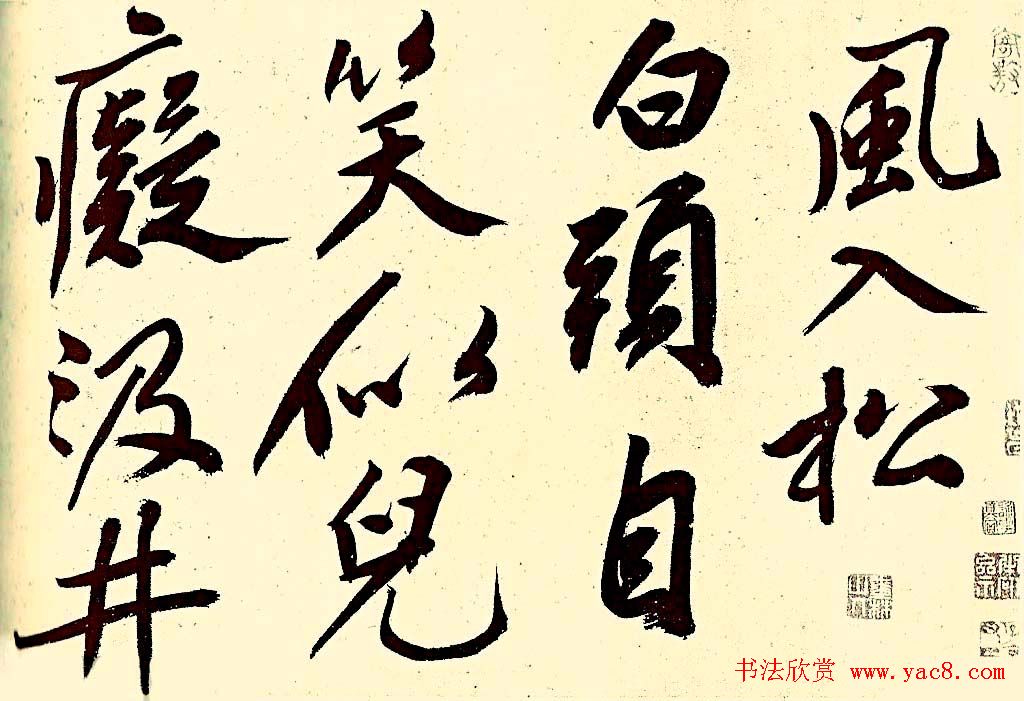 風入松
白頭自
笑似兒
癡汲井
书法欣赏 www.yac8.com